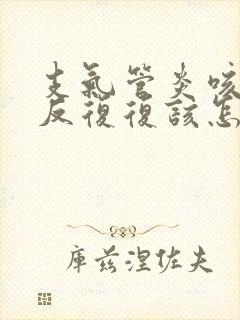 支氣管炎咳
反復復該怎
庫茲涅佐夫